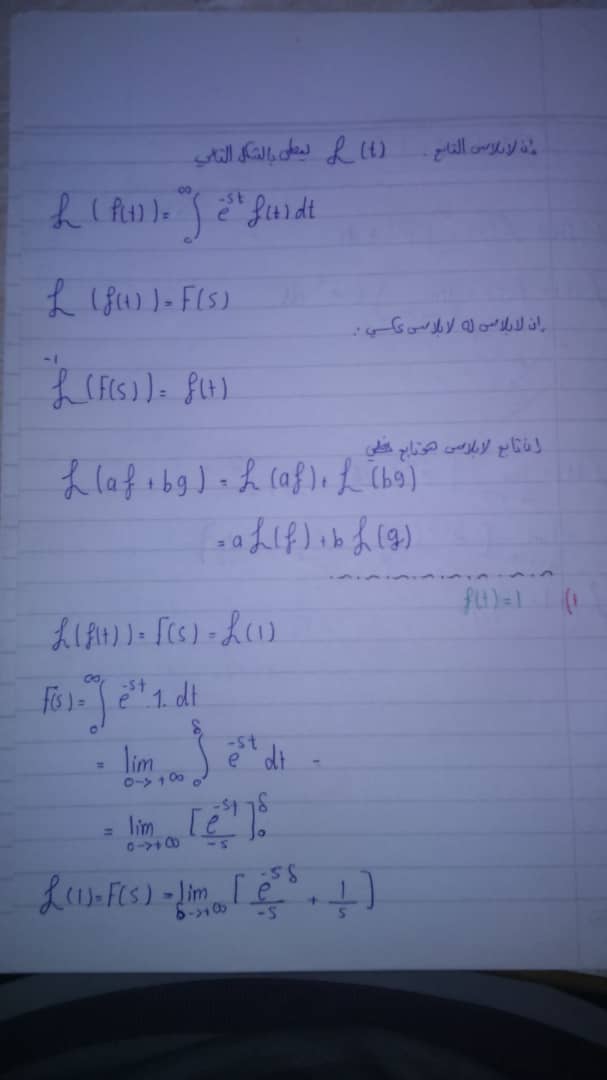 إن لابلاس التابع. ℒ(t) ليعطى بالشكل التالي
ℒ(f(t)) = ∫₀^∞ e^{-st} f(t) dt
ℒ(f(t)) = F(s)
إن لابلاس له لابلاس عكسي.
ℒ^{-1}(F(s)) = f(t)
إن تابع لابلاس هو تابع خطي
ℒ(af + bg) = ℒ(af) + ℒ(bg)
= aℒ(f) + bℒ(g)
(1 f(t) = 1
ℒ(f(t)) = F(s) = ℒ(1)
F(s) = ∫₀^∞ e^{-st} 1. dt
= lim_{δ→+∞} ∫₀^δ e^{-st} dt
= lim_{δ→+∞} [e^{-st}/-s]₀^δ
ℒ(1) = F(s) = lim_{δ→+∞} [e^{-sδ}/-s + 1/s]